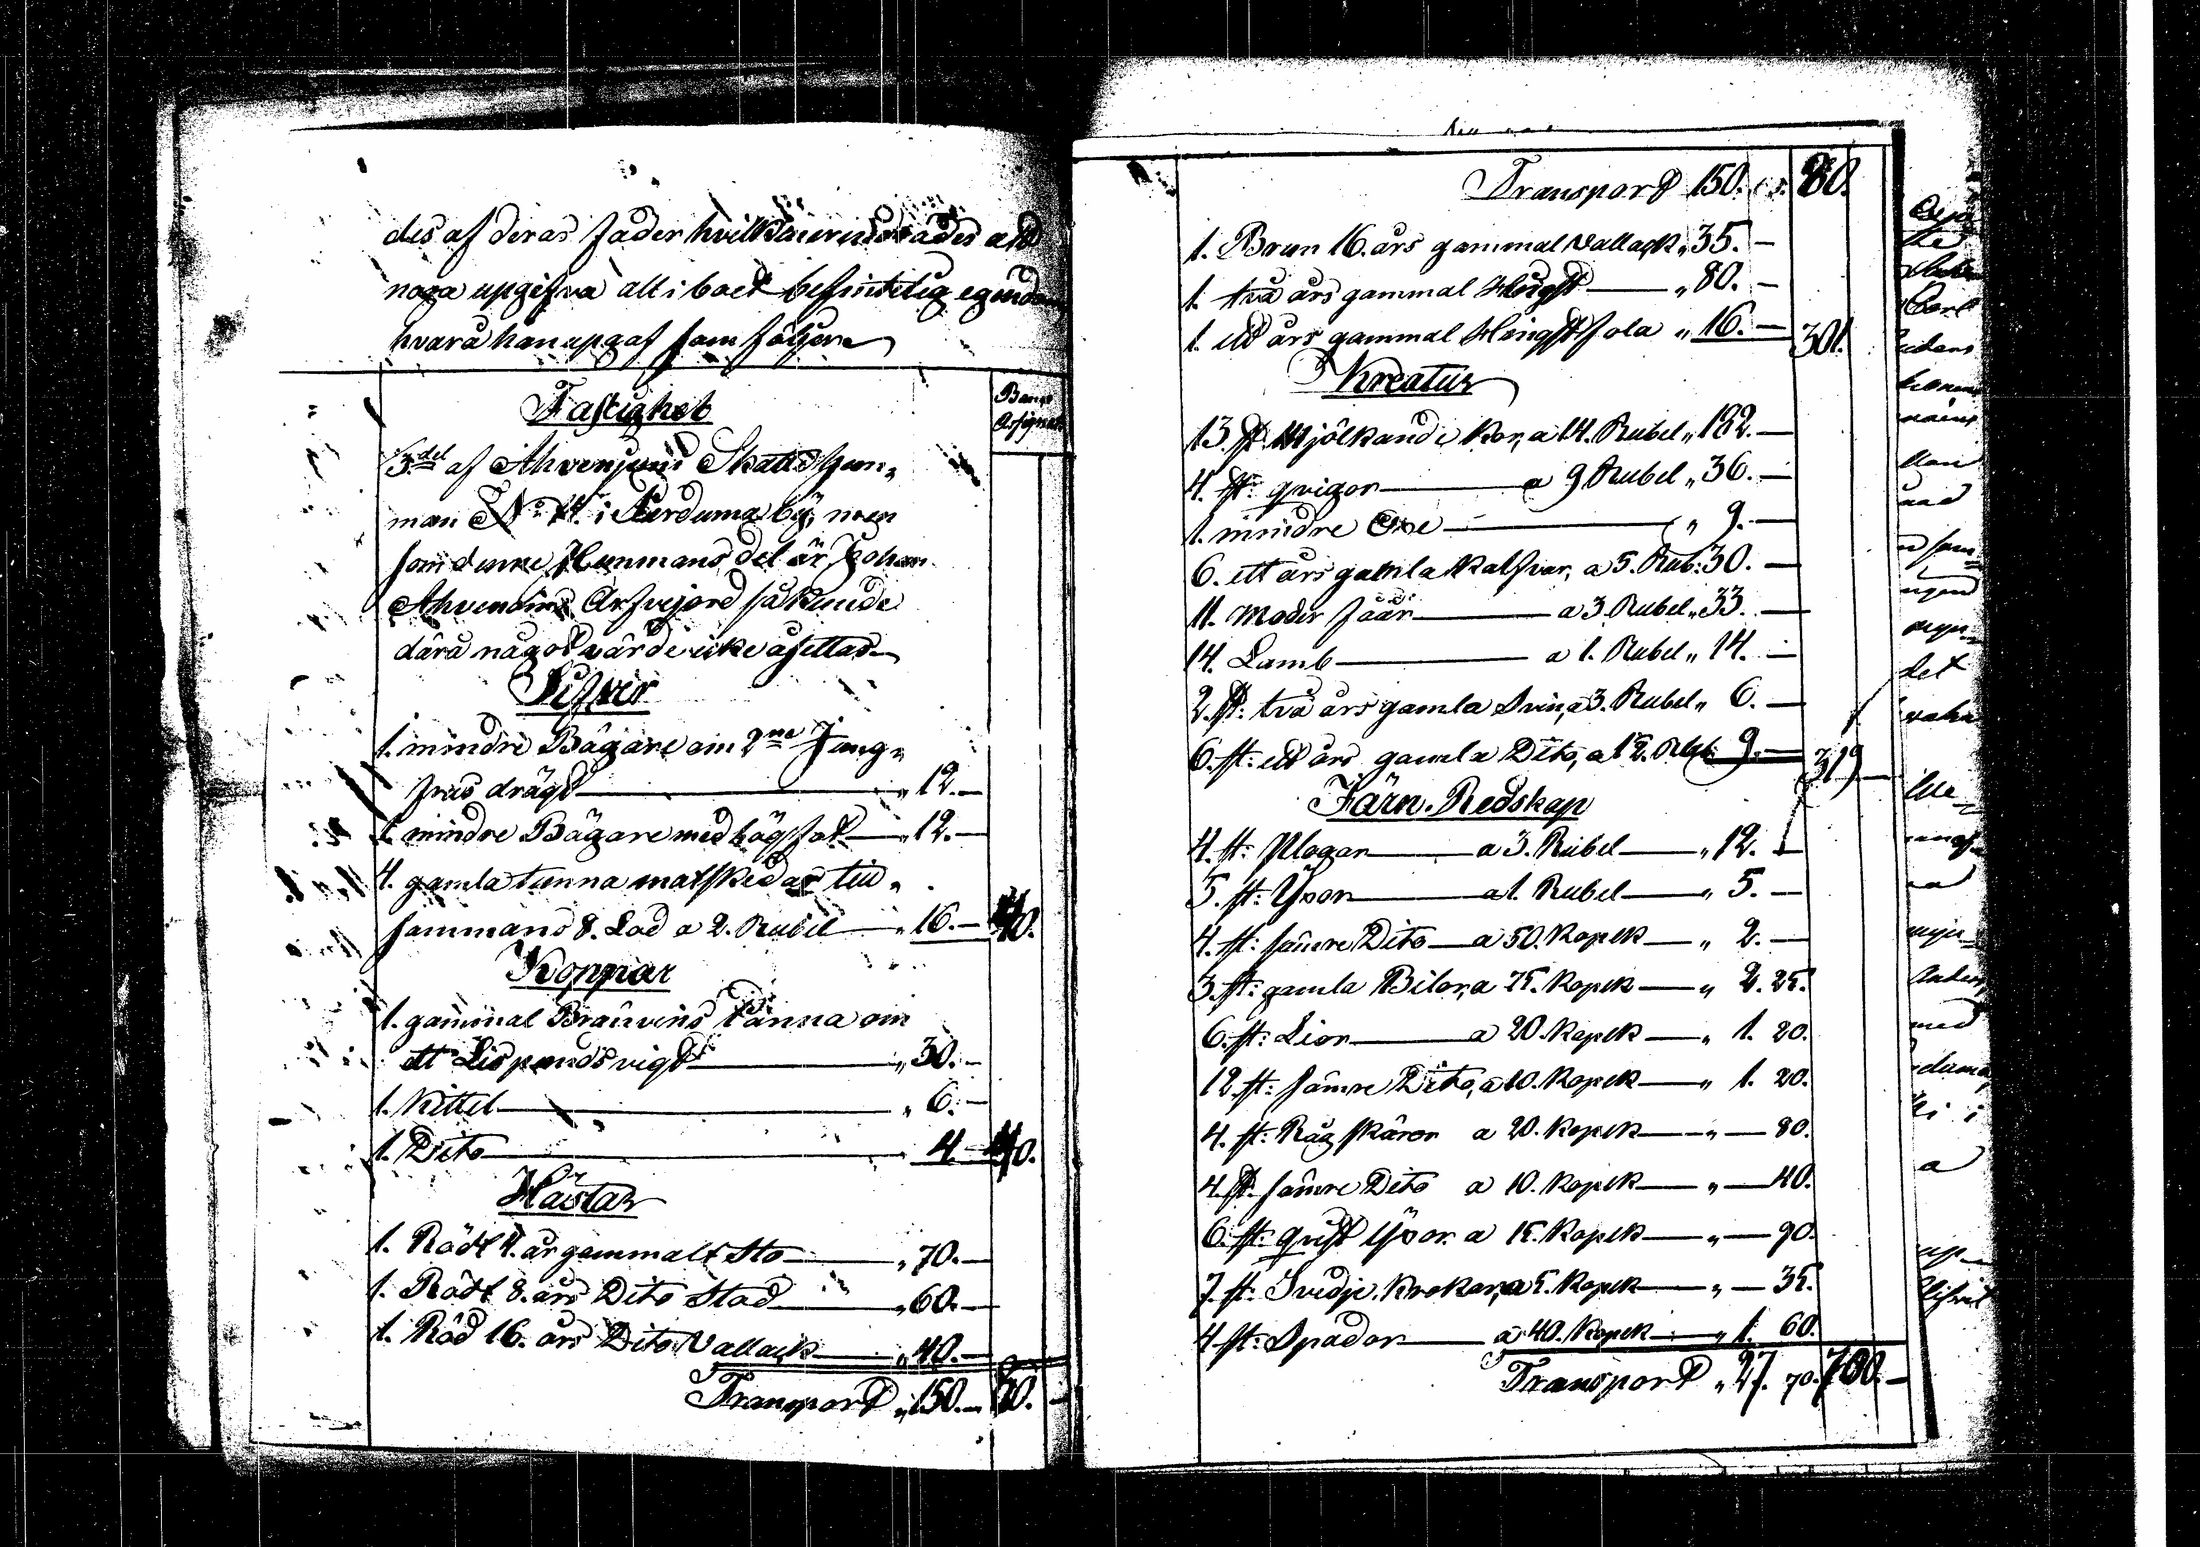 des af deras fader hvilken erindrades att
noga upgifva alt i boet befintelig egendom
hvarå han upgaf som följer
Fastighet
Banco Assignat
5del af Ahvenjans Skatte Hem„
man No 14. i Kerduma by, men
som denne Hemmans del är Johan
Ahvenains Arfvejord så kunde
därå något värde icke åsettas
Silfver
1. mindre Bägare om 2ne Jung„
frus drägt „ 12. —
1. mindre Bägare med hög fot „ 12. —
4. gamla tunna matskedar till„
sammans 8. Lod a 2. Rubel „ 16. — 40.
Koppar
1. gammal Bränvins Panna om
ett Lispunds vigt „ 30. —
1. Kittel „ 6. —
1. Dito 4. — 40.
Hästar
1. Rödt 4. år gammalt Sto „ 70. —
1. Rödt 8. års Dito Stod „ 60. —
1. Röd 16. års Dito Vallack „ 40. —
Transport „ 150. — 80. —
Transport 150. 80.
1. Brun 16. års gammal Vallack „ 35. —
1. två års gammal Hingst „ 80. —
1. ett års gammal Hingst fola „ 16. — 301.
Kreatur
13. st. Mjölkande Kor, a 14. Rubel „ 182. —
4. st: qvigor a 9 Rubel „ 36. —
1. mindre Oxe „ 9. —
6. ett års gamla Kalfvar, a 5. Rub: 30. —
11. Moder fåår a 3. Rubel „ 33. —
14. Lamb a 1. Rubel „ 14. —
2. st: två års gamla Svin, a 3. Rubel „ 6. —
6. st: ett års gamla Dito, a 1½. Rbl: 9. — 319 —
Järn Redskap
4. st: Plogar a 3. Rubel „ 12. —
5. st: Yxor a 1. Rubel „ 5. —
4. st: sämre Dito a 50. Kopek „ 2. —
3. st: gamla Bilor, a 75. Kopek „ 2. 25.
6. st: Lior a 20. Kopek „ 1. 20.
12. st: sämre Dito, a 10. Kopek „ 1. 20.
4. st: Råg skäror a 20. Kopek „ — 80.
4. st. sämre Dito a 10. Kopek „ — 40.
6. st: qvist Yxor a 15. Kopek „ — 90.
7. st: Svedje Krokar, a 5. Kopek „ — 35.
4 st: Spador a 40. Kopek „ 1. 60.
Transport „ 27. 70. 700. —